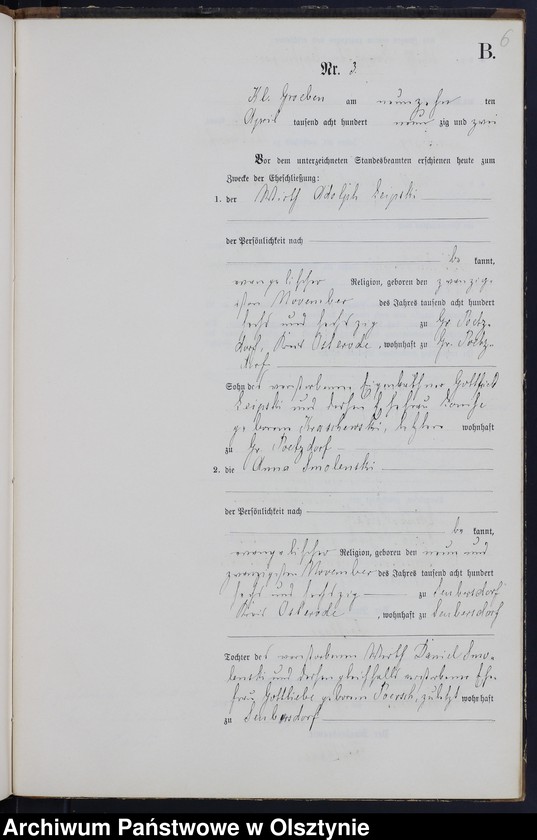 6
B.
Nr. 3.
Kl. Groeben am neunzehn ten
April tausend acht hundert neun zig und zwei
Vor dem unterzeichneten Standesbeamten erschienen heute zum
Zwecke der Eheschließung:
1. der Wirth Adolph Leipski
der Persönlichkeit nach
be kannt,
evangelischer Religion, geboren den zwanzig-
sten November des Jahres tausend acht hundert
sechs und sechszig zu Gr. Poetz-
dorf, Kreis Osterode, wohnhaft zu Gr. Poetz-
dorf
Sohn des verstorbenen Eigenkäthner Gottlieb
Leipski und dessen Ehefrau
geborene Kraschewski, letztere wohnhaft
zu Gr. Poetzdorf
2. die Anna Smolenski
der Persönlichkeit nach
be kannt,
evangelischer Religion, geboren den neun und
zwanzigsten November des Jahres tausend acht hundert
sechs und sechszig zu Seubersdorf
Kreis Osterode, wohnhaft zu Seubersdorf
Tochter des verstorbenen Wirth Daniel Smo-
lenski und dessen gleichfalls verstorbene Ehe-
frau Gottliebe geborene zuletzt wohnhaft
zu Seubersdorf
Archiwum Państwowe w Olsztynie